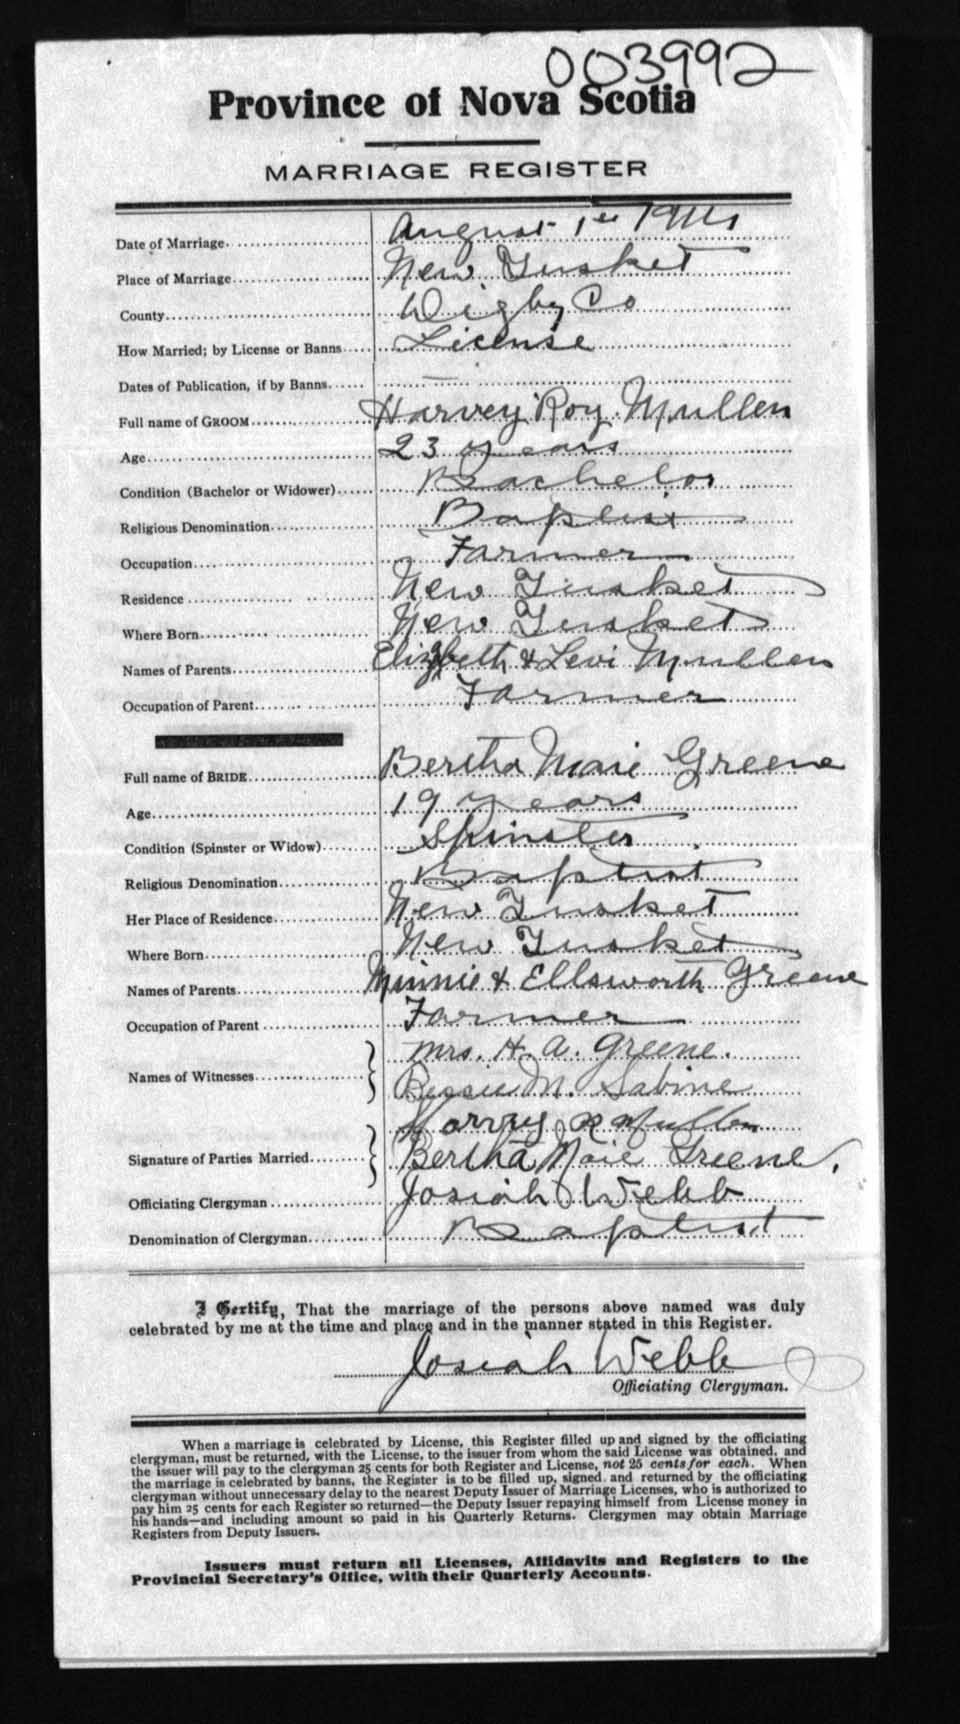 003992
Province of Nova Scotia
MARRIAGE REGISTER
Date of Marriage August 1st
Place of Marriage New Tusket
County Digby Co
How Married; by License or Banns License
Dates of Publication, if by Banns
Full name of GROOM Harvey Roy Mullen
Age 23 years
Condition (Bachelor or Widower) Bachelor
Religious Denomination Baptist
Occupation Farmer
Residence New Tusket
Where Born New Tusket
Names of Parents Elizabeth & Levi Mullen
Occupation of Parent Farmer
Full name of BRIDE Bertha Marie Greene
Age 19 years
Condition (Spinster or Widow) Spinster
Religious Denomination Baptist
Her Place of Residence New Tusket
Where Born New Tusket
Names of Parents Minnie & Ellsworth Greene
Occupation of Parent Farmer
Names of Witnesses Mrs. H. A. Greene.
Bessie M. Sabine
Signature of Parties Married Harvey R Mullen
Bertha Marie Greene.
Officiating Clergyman Josiah Webb
Denomination of Clergyman Baptist
I Certify, That the marriage of the persons above named was duly
celebrated by me at the time and place and in the manner stated in this Register.
Josiah Webb
Officiating Clergyman.
When a marriage is celebrated by License, this Register filled up and signed by the officiating
clergyman, must be returned, with the License, to the issuer from whom the said License was obtained, and
the issuer will pay to the clergyman 25 cents for both Register and License, not 25 cents for each. When
the marriage is celebrated by banns, the Register is to be filled up, signed and returned by the officiating
clergyman without unnecessary delay to the nearest Deputy Issuer of Marriage Licenses, who is authorized to
pay him 25 cents for each Register so returned—the Deputy Issuer repaying himself from License money in
his hands—and including amount so paid in his Quarterly Returns. Clergymen may obtain Marriage
Registers from Deputy Issuers.
Issuers must return all Licenses, Affidavits and Registers to the
Provincial Secretary's Office, with their Quarterly Accounts.